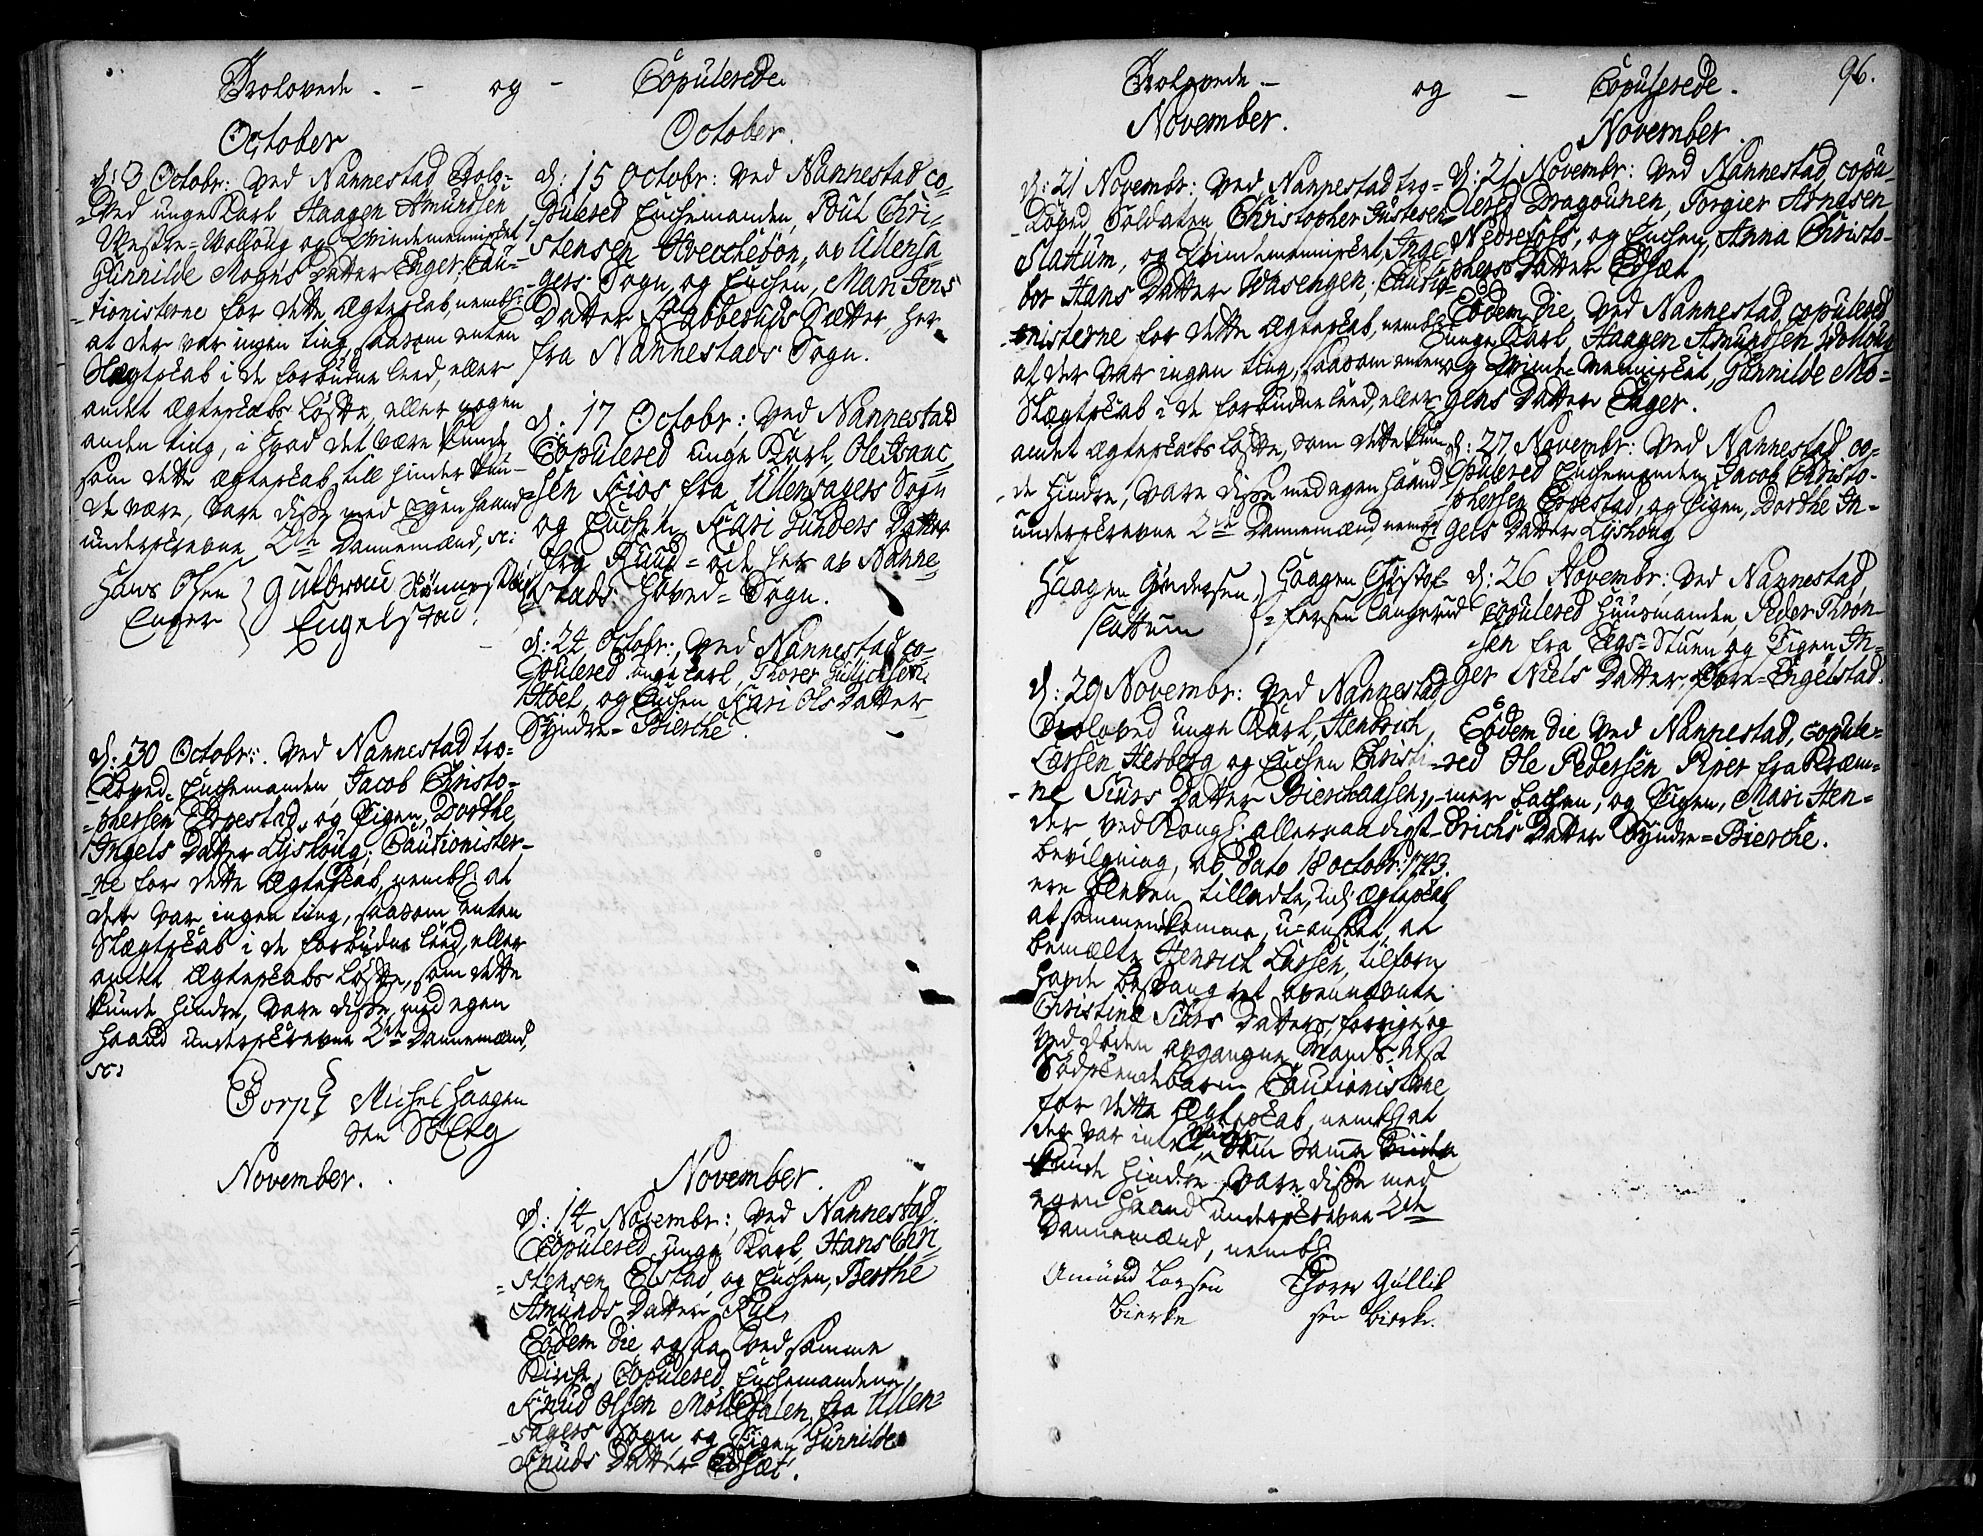 Trolovede - og - Copulerede
October
d: 3 Octobr: ved Nannestad Trolo-
-ved unge Karl Haagen Amundsen
Westre-Wolloug og Qvindemennisket
Gunnilde Mogns Datter Enger, Cau-
-tionisterne for dette Ægteskab, nembl:
at der var ingen ting, saasom enten
Slægtskab i de forbudne leed, eller
andet Ægteskabs Løfte, eller nogen
anden ting, i hvad det være kunde
som dette Ægteskab till hinder kun-
de være, vare disse med Egen haand
underskrevne 2de Dannemænd, sc:
Hans Olsen Gulbrand
Enger Engelstad
d: 30 Octobr: ved Nannestad tro-
-loved Enchemanden Jacob Christo-
-phersen Eppestad, og Pigen, Dorthe
Ingels Datter Lyshoug; Cautionister-
-ne for dette Ægteskab, nembl: at
der var ingen ting, saasom enten
Slægtskab i de forbudne leed, eller
andet Ægteskabs Løfte, som dette
kunde hindre, vare disse, med egen
haand underskrevne 2de Dannemænd,
sc:
Corpl Michel Haagen
sen Aaberg
November.
October.
d: 15 Octobr: ved Nannestad co-
-pulered Enchemanden, Poul Chri-
stensen Hverchebøn, av Ullensa-
-gers Sogn, og Enchen, Mari Jens
Datter Rabberuds Sætter, her
fra Nannestads Sogn.
d: 17 Octobr: ved Nannestad
Copulered unge Karl, Ole Isaac-
-sen Kios fra Ullensagers Sogn
og Enchen, Kari Gunders Datter
fra Ruud-øde her av Nanne-
stads Hoved-Sogn.
d: 24 Octobr:, ved Nannestad co-
pulered unge Karl, Thorer Gullichsen
og Enchen, Kari Ols Datter
Syndre-Bierche.
November.
d: 14 Novembr: ved Nannestad
Copulered unge Karl, Hans Chri-
-stensen, Elstad, og Enchen, Berthe
Amunds Datter, Rud,
Eodem die, ogsaa ved samme
Kirche, Copulered Enchemanden
Knud Olsen Mølledalen, fra Ullen-
-sagers Sogn og Pigen Gunnilde
Knuds Datter Edsæt.
Trolovede - og - Copulerede.
96.
November.
d: 21 Novembr: ved Nannestad tro-
-loved Soldaten Christopher
Slattum, og Qvindemennisket, Inge-
bor Hans Datter Wasengen, Cauti-
-onisterne for dette Ægteskab, nembl:
at der var ingen ting, saasom enten
Slægtskab i de forbudne leed, eller
andet Ægteskabs Løfte, som dette kun-
de hindre, vare disse med egen haand
underskrevne 2de Dannemænd, nembl
Haagen Gundersen, Haagen Christof-
slattum fersen Langerud
d: 29 Novembr: ved Nannestad
Troloved unge Karl, Hendrich,
Larsen Hesberg og Enchen Christi-
-ne Siurs Datter Bierchaasen,
der ved Kongl: allernaadigst
bevilgning, af Dato 18 octobr: 1743.
ere bleven tilladte, udj Ægteskab
at sammenkomme, u-anseet, at
bemælte Hendrich Larsen, tilforn
havde besvangret ovennævnte
Christine Siurs Datters, forrige og
ved døden avgangne Mands Næst
Sødskendebarn Cautionisterne
for dette Ægteskab, nembl: at
der var intet videre som samme
kunde hindre, vare disse med
egen haand underskrevne 2de
Dannemænd, nembl:
Amund Larsen Thorer Gullik
Bierke sen Bierke.
November.
d: 21 Novembr: ved Nannestad, copu-
lered Dragounen, Torgier Arnesen
Nedrefols, og Enchen, Anna Christo-
phers Datter Edsæt
Eodem die, ved Nannestad, copulered
unge Karl, Haagen Amundsen Wolloug
og Qvinde-Mennisket, Gunnilde Mo-
gens Datter Enger.
d: 27 Novembr: ved Nannestad co-
pulered Enchemanden, Jacob Christo-
phersen Eppestad, og Pigen, Dorthe In-
gels Datter Lyshoug
d: 26 Novembr: ved Nannestad,
copulered Huusmanden, Peder Thron-
-sen fra Ægs-Stuen og Pigen In-
ger Niels Datter, Øvre-Engelstad.
Eodem die ved Nannestad, copule-
-red Ole Pedersen Piper fra Kræm-
-mer bachen, og Pigen, Mari Hen-
drichs Datter Syndre-Bierche.